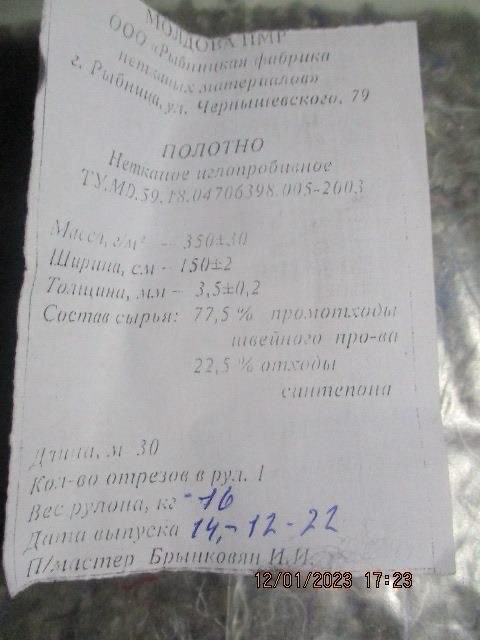 МОЛДОВА ПМР
ООО «Рыбницкая фабрика
нетканых материалов»
г. Рыбница, ул. Чернышевского, 79
ПОЛОТНО
Нетканое иглопробивное
ТУ.MD.59.18.04706398.005-2003
Масса, г/м² – 350±30
Ширина, см – 150±2
Толщина, мм – 3,5±0,2
Состав сырья: 77,5 % промотходы
швейного про-ва
22,5 % отходы
синтепона
Длина, м 30
Кол-во отрезов в рул. 1
Вес рулона, кг - 16
Дата выпуска 14,-12-22
П/мастер Брынковян И.И.
12/01/2023 17:23